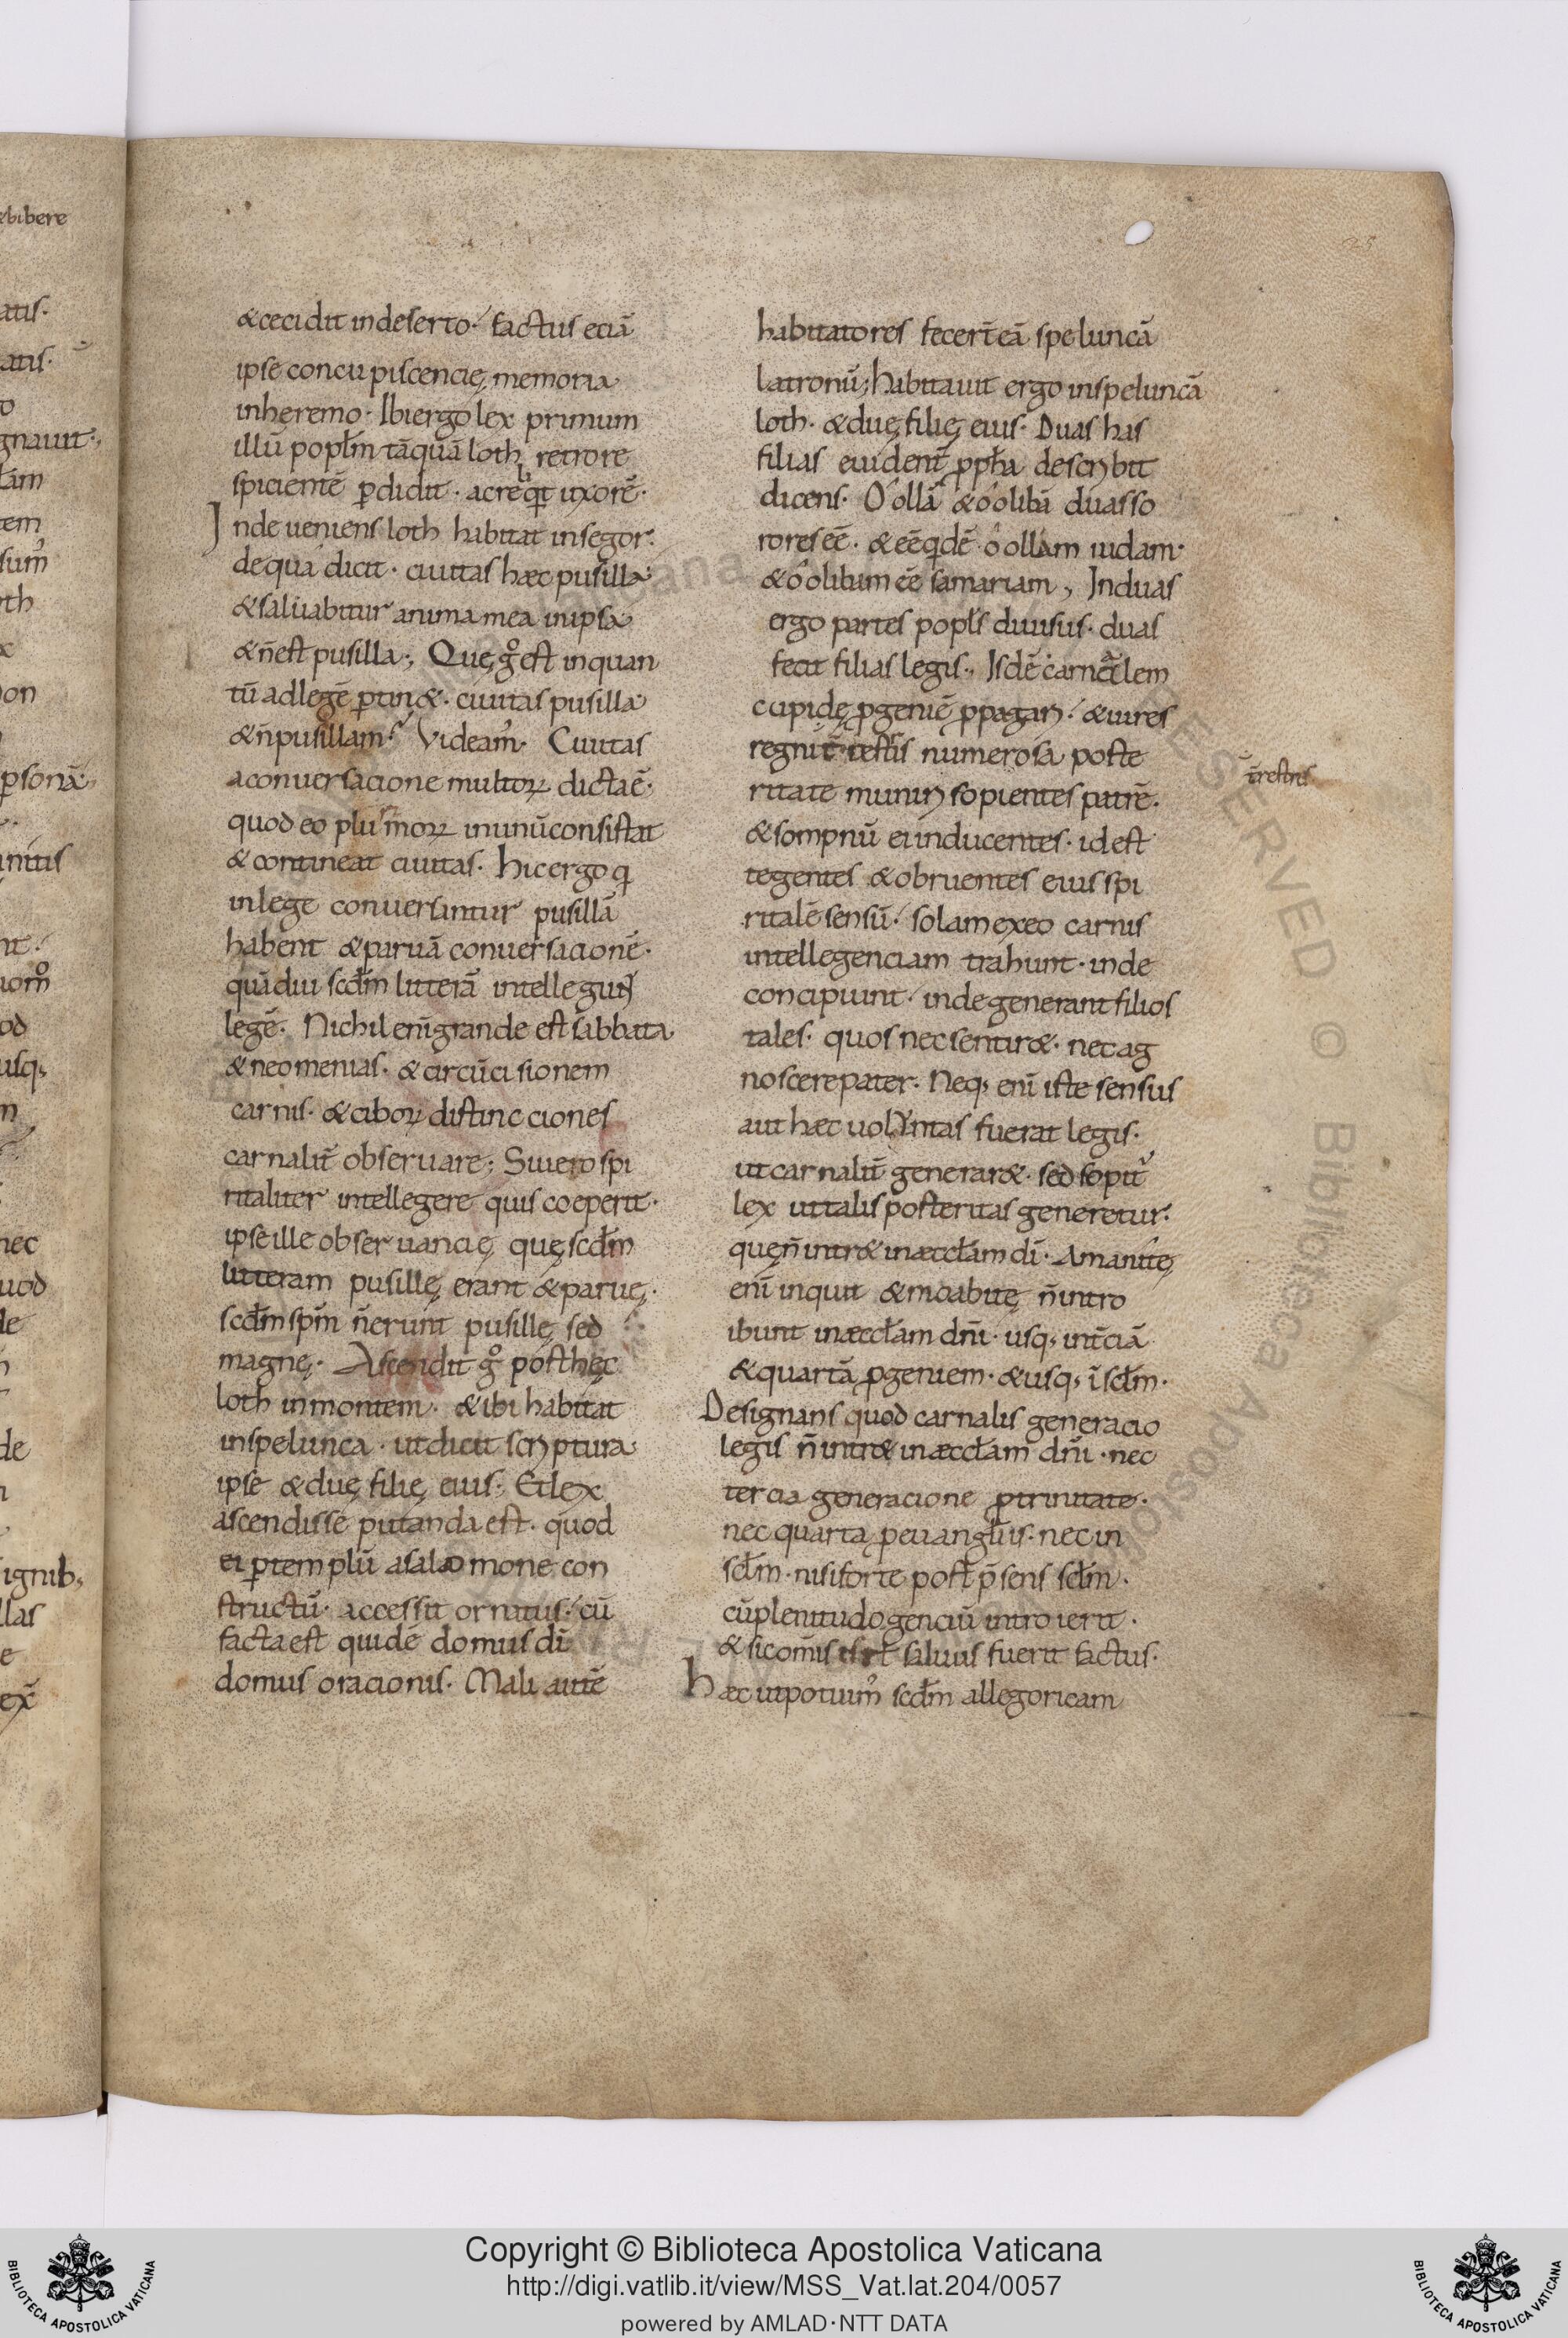 &cecidit indeserto· factus eciā
ipse concupiscencię memoria
inheremo· Ibi ergo lex primum
illū popl̄m tāquā loth retrore
spicientē ꝑdidit· acreliq̄t uxorē·
Inde ueniens loth habitat insegor·
dequa dicit· ciuitas hæc pusilla
&saluabitur anima mea inipsa
&n̄est pusilla·, Quę gͦ est inquan
tū adlegē ꝑtin&· ciuitas pusilla
&n̄pusilla· Videam᷒· Ciuitas
aconuersacione multoꝝ dictaē·
quod eo plurimoꝝ inunūconsistat
&contineat ciuitas· hicergo q
inlege conuersantur pusillā
habent &paruā conuersacionē·
quādiu scd̄m litterā intellegunt
legē· Nichil enī grande est sabbata
&neomenias· &circūcisionem
carnis· &ciboꝝ distincciones
carnalit̄ obseruare; Siuero spi
ritaliter intellegere quis coeperit·
ipse ille obseruancię quę scd̄m
litteram pusillę erant &paruę·
scd̄m spm̄ n̄erunt pusillę sed
magnę· Ascendit gͦ posthęc
loth inmontem· &ibi habitat
inspelunca· utdicit scriptura
ipse &duę filię eius·, Etlex
ascendisse putanda est· quod
ei ꝑtemplū asalomone con
structū· accessit ornatus· cū
facta est quidē domus dī
domus oracionis· Mali autē
habitatores fecer̄t eā speluncā
latronū; habitauit ergo inspeluncā
loth· &duę filię eius· Duas has
filias euident̄ ꝓph̄a describit
dicens· Oollā &oolibā duasso
rores eē· &eēq̄dē oollam iudam·
&oolibam eē samariam, Induas
ergo partes popl̄s diuisus· duas
fecit filias legis·, Isdē carnalem
cupidę ꝓgeniē ꝓpagari· &uires
regni t̄restris numerosa poste
ritate muniri sopientes patrē·
&sompnū ei inducentes· idest
tegentes &obruentes eius spi
ritalē sensū· solam exeo carnis
intellegenciam trahunt· inde
concipiunt· inde generant filios
tales· quos nec sentir&· nec ag
nosceret pater· Neq; enī iste sensus
aut hæc uoluntas fuerat legis·
ut carnalit̄ generar&· sed sopit᷒
lex ut talis posteritas generetur·
quęn̄intr& inæccl̄am dī· Amanitę
enī inquit &moabitę n̄intro
ibunt inæccl̄am dn̄i· usq; int̄ciā
&quartā ꝓgeniem· &usq; ī scl̄m·
Designans quod carnalis generacio
legis n̄intr& inæccl̄am dn̄i· nec
tercia generacione ꝑtrinitate·
nec quarta ꝑeuangl̄iis· nec in
scl̄m· nisi forte post p̄sens scl̄m·
cū plenitudo genciū introierit·
&sic om̄is isrl̄ saluus fuerit factus·
hæc utpotuim᷒ scd̄m allegoricam
t̄restris
Copyright © Biblioteca Apostolica Vaticana
http://digi.vatlib.it/view/MSS_Vat.lat.204/0057
powered by AMLAD·NTT DATA